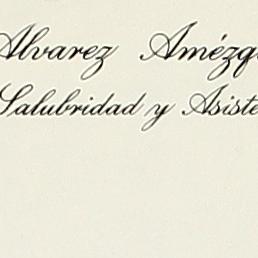 Alvarez Amézq
Salubridad y Asiste